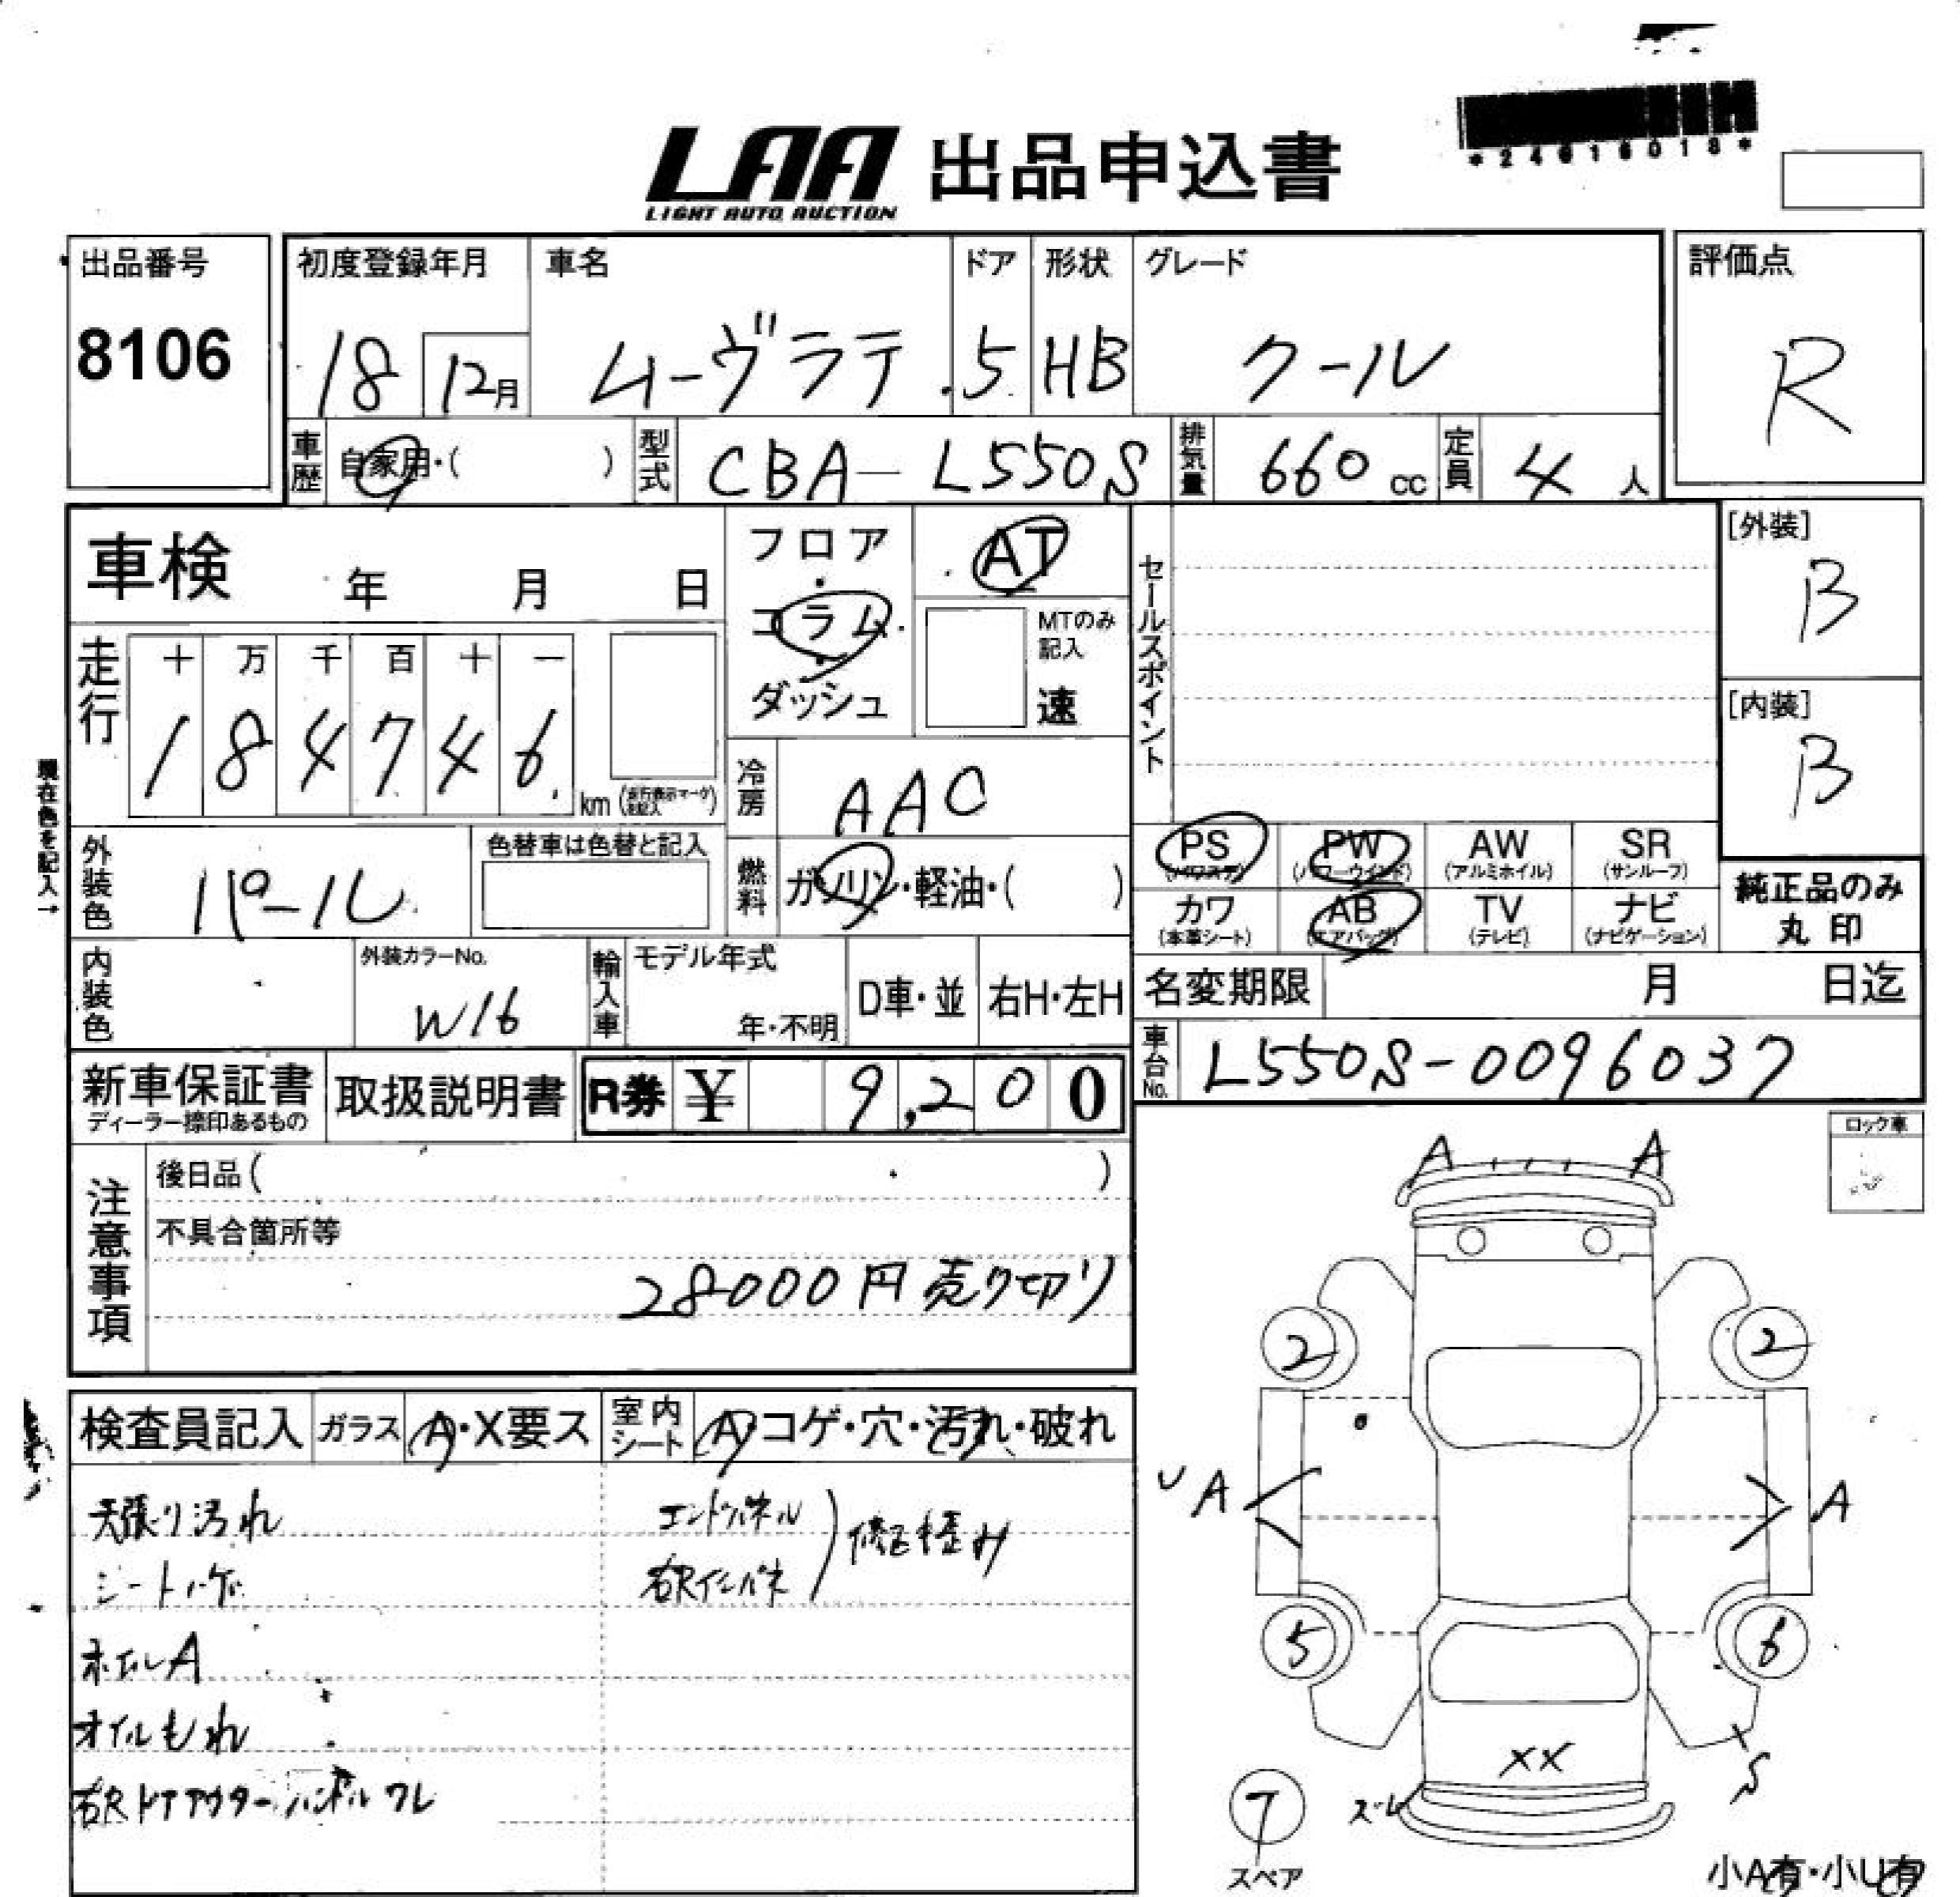 *24616018*
LAA 出品申込書
LIGHT AUTO AUCTION
出品番号
8106
初度登録年月
18 12月
車名
ムーヴラテ
ドア
5
形状
HB
グレード
クール
評価点
R
車歴 自家用・( )
型式 CBA-L550S
排気量 660 cc
定員 4 人
車検 年 月 日
フロア・コラム・ダッシュ
AT
MTのみ記入
速
セールスポイント
[外装]
B
[内装]
B
走行
十 万 千 百 十 一
1 8 4 7 4 6
km (走行表示マークを記入)
冷房 AAC
現在色を記入→
外装色 パール
色替車は色替と記入
燃料 ガソリン・軽油・( )
PS (パワステ)
PW (パワーウインド)
AW (アルミホイル)
SR (サンルーフ)
カワ (本革シート)
AB (エアバッグ)
TV (テレビ)
ナビ (ナビゲーション)
純正品のみ
丸印
内装色
外装カラーNo.
W16
輸入車
モデル年式
年・不明
D車・並
右H・左H
名変期限 月 日迄
新車保証書
ディーラー捺印あるもの
取扱説明書
R券 ¥ 9,200
車台No. L550S-0096037
注意事項
後日品( )
不具合箇所等
28000円売り切り
ロック車
検査員記入
ガラス A・X要ス
室内シート A・コゲ・穴・汚れ・破れ
天張り汚れ
シートハゲ
ホイルA
オイルもれ
右Rドアアウターハンドルワレ
エンドパネル
右Rインパネ
修正積み
A A
2 2
A A
5 6
XX
ズレ
S
7
スペア
小A有・小U有